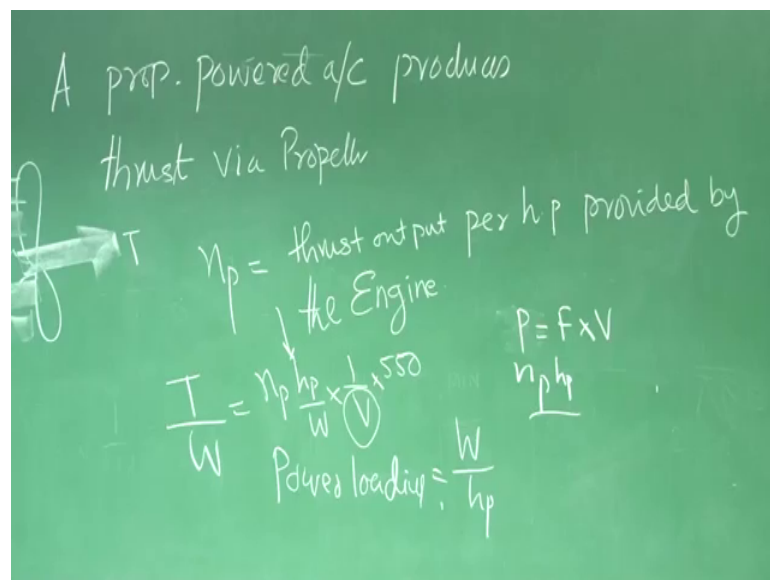 A prop. powered a/c produces
thrust via Propeller
T
ηp = thrust output per h.p provided by
the Engine
P = F x V
ηp hp
T/W = ηp hp/W x 1/V x 550
Power loading = W/hp